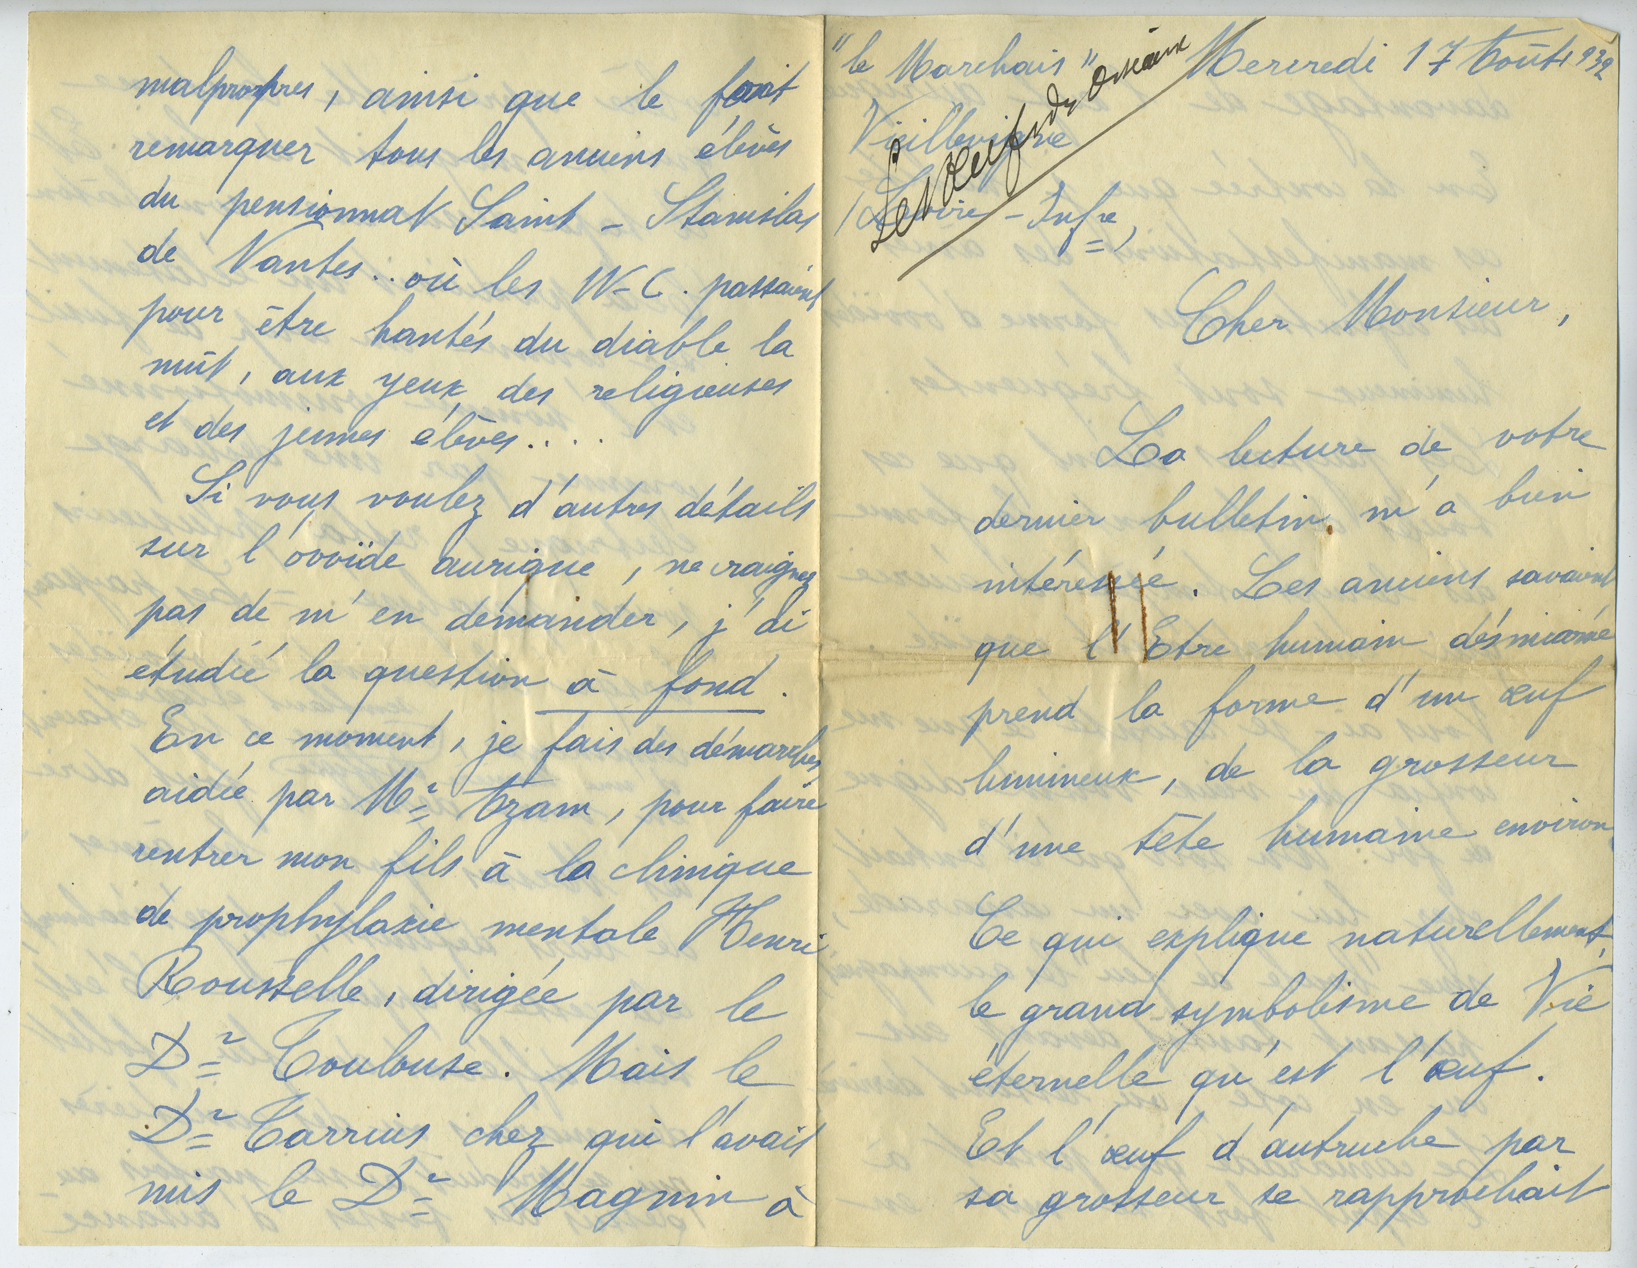 malpropres, ainsi que le font
remarquer tous les anciens élèves
du pensionnat Saint-Stanislas
de Nantes.. où les W-C. passaient
pour être hantés du diable la
nuit, aux yeux des religieuses
et des jeunes élèves....
Si vous voulez d'autres détails
sur l'ovoïde aurique, ne craignez
pas de m'en demander, j'ai
étudié la question à fond.
En ce moment, je fais des démarches,
aidée par Mr Azam, pour faire
rentrer mon fils à la clinique
de prophylaxie mentale Henri
Rousselle, dirigée par le
Dr Toulouse. Mais le
Dr chez qui l'avait
mis le Dr Magnin à
"le Marchais" Mercredi 17 Août 1932
Vieillevigne
(Loire-Infre)
Cher Monsieur,
La lecture de votre
dernier bulletin m'a bien
intéressée. Les anciens savaient
que l'Etre humain désincarné
prend la forme d'un œuf
lumineux, de la grosseur
d'une tête humaine environ
Ce qui explique naturellement,
le grand symbolisme de Vie
éternelle qu'est l'œuf.
Et l'œuf d'autruche par
sa grosseur se rapprochait